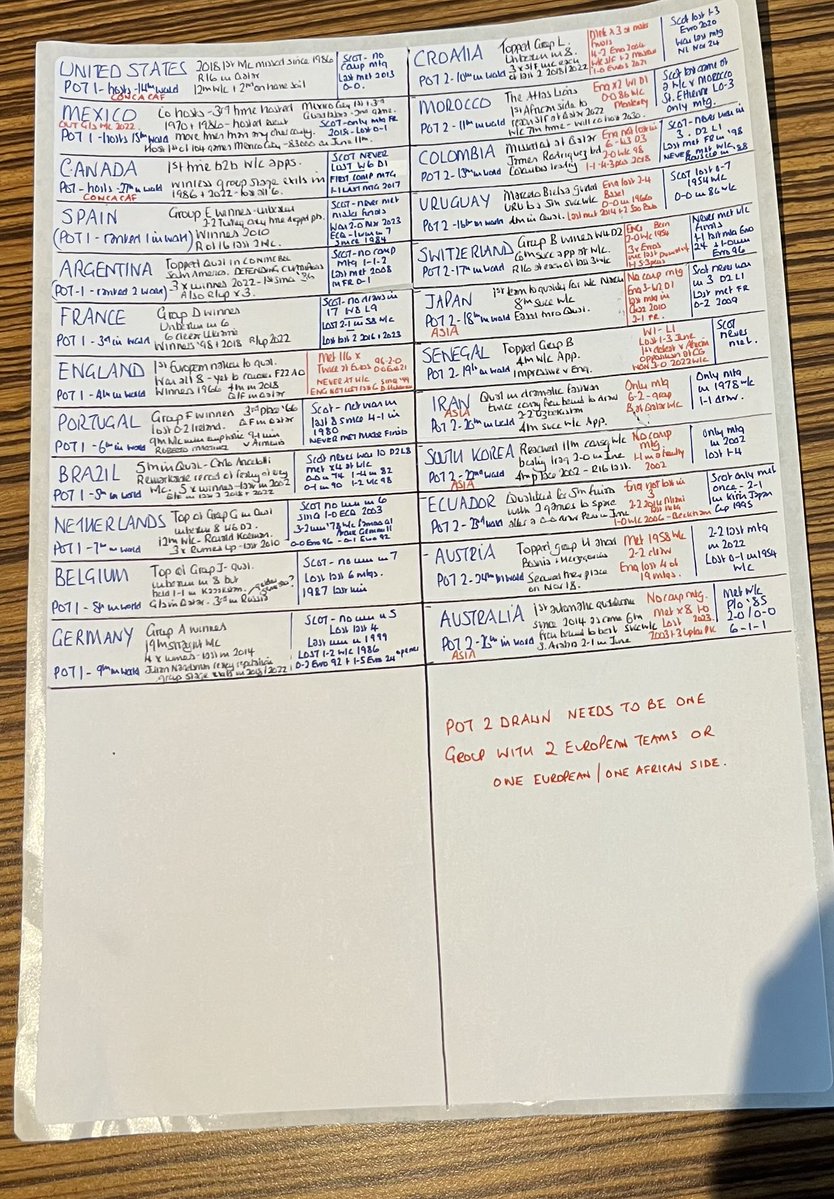 UNITED STATES 2018 1st WC missed since 1986
R16 in Qatar
POT 1 - hosts - 14th in world 12th WC + 2nd on home soil
CONCACAF
SCOT - no
comp mtg
Last met 2013
0-0.
MEXICO Co hosts - 3rd time hosted
OUT G/S WC 2022 1970 + 1986 - hosted
POT 1 - hosts 15th in world more than any country.
Host 1st of 104 games Mexico City - 83000 on June 11th.
SCOT - only mtg FR
2018 - Lost 0-1
CANADA 1st time b2b WC apps.
Winless group stage exits in
POT - hosts - 27th in world 1986 + 2022 - lost all 6.
CONCACAF
SCOT NEVER
LOST W6 D1
FIRST COMP MTG
1-1 LAST MTG 2017
SPAIN Group E winners - unbeaten
2-2 Turkey only time dropped pts.
(POT 1 - ranked 1 in world) Winners 2010
R of 16 last 2 WC.
SCOT - never met
finals
Won 2-0 Mar 2023
since 1984
ARGENTINA Topped Qual in CONMEBOL
South America. DEFENDING CHAMPIONS
(POT-1 - ranked 2 world) 3 x winners 2022 - 1st since '86
Also R/up x 3.
SCOT - no comp
mtg 1-1-2
Last met 2008
in FR 0-1
FRANCE Group D winners
Unbeaten in 6
6 clear Ukraine
POT 1 - 3rd in world Winners '98 + 2018 R/up 2022
SCOT - no draws in
17 W8 L9
LOST 2-1 in 58 WC
Lost last 2 2016 + 2023
ENGLAND 1st European nation to qual.
Won all 8 - yet to concede. F22 A0
POT 1 - 4th in world Winners 1966 4th in 2018
Q/F in Qatar
Met 116 x
Twice at Euros 96 2-0
0-0 Eu 21
NEVER AT WC
PORTUGAL Group F winners 3rd place '66
Lost 0-2 Ireland. Q/F in Qatar
POT 1 - 6th in world 9th WC 9-1 win
Roberto Martinez v Armenia
Scot - not won in
last 8 since 4-1 in
1980
NEVER MET MAJOR FINALS
BRAZIL 5th in Qual - Carlo Ancelotti
Remarkable record of being at every
POT 1 - 5th in world WC. 5 x winners - last in 2002
Q/Fs in last 2 2018 + 2022
Scot never won 10 D2 L8
met x4 at WC
0-0 in 74 1-4 in 82
0-1 in 90 1-2 WC 98
NETHERLANDS Top of Group G in Qual
unbeaten 8 W6 D2.
12th WC - Ronald Koeman.
POT 1 - 7th in world 3 x Runners Up - last 2010
SCOT no win in 6
since 1-0 ECQ 2003
3-2 win '78 WC
Archie Gemmill
0-0 Euro 96 - 0-1 Euro 92
BELGIUM Top of Group J - Qual.
unbeaten in 8 but
held 1-1 in Kazakhstan.
POT 1 - 8th in world G/S in Qatar - 3rd in Russia
SCOT - no win in 7
Lost last 6 mtgs.
1987 last win
GERMANY Group A winners
19th straight WC
4 x winners - last in 2014
POT 1 - 9th in world Julian Nagelsmann
group stage exits in 2018/2022
SCOT - no win in 5
Lost last 4
Last win in 1999
LOST 1-2 WC 1986
0-2 Euro 92 + 1-5 Euro 24 opener
CROATIA Topped Group L.
Unbeaten in 8.
POT 2 - 10th in world 3 x S/F
in last 2 2018/2022
4-2 Euro 2004
1-0 Euros 2021
Scot lost 1-3
Euro 2020
Won last mtg
NL Nov 24
MOROCCO The Atlas Lions
1st African side to
POT 2 - 11th in world reach S/F at Qatar 2022
WC 7th time - will co host 2030.
Eng x2 W1 D1
0-0 86 WC
Monterrey
Scot last game of
a WC v MOROCCO
St. Etienne L0-3
Only mtg.
COLOMBIA Missed out at Qatar
James Rodriguez led
POT 2 - 13th in world
6 - W3 D3
2-0 WC 98
1-1 - 4-3 pens 2018
Scot - never won in
3. D2 L1
Last met FR in '98
NEVER met WC.
URUGUAY Marcelo Bielsa guided
URU to 5th succ WC
POT 2 - 16th in world 4th in Qual.
Eng lost 2-4
Basel
0-0 in 1966
Scot lost 0-7
1954 WC
0-0 in 86 WC
SWITZERLAND Group B winners W4 D2
6th succ app at WC.
POT 2 - 17th in world R16 at each of last 3 WC
ENG Bern
2-0 WC 1954
3 x Euros
Never met WC
Finals
1-1 last mtg Euro
24 + 1-0 win
Euro 96
JAPAN 1st team to quality for WC
8th succ WC
POT 2 - 18th in world
ASIA
No comp mtg
Eng 3 - W2 D1
last mtg in
2010
2-1 FR.
Scot never won
in 3 D2 L1
Last met FR
0-2 2009
SENEGAL Topped Group B
4th WC App.
POT 2 - 19th in world Impressive v Eng.
W1 - L1
Lost 1-3 June
1st defeat v African
opposition
WON 3-0 2022 WC
SCOT
never
met.
IRAN Qual in dramatic fashion
twice coming from behind to draw
POT 2 - 20th in world 2-2 Uzbekistan
ASIA
4th succ WC App.
Only mtg
6-2 - group
B at Qatar WC
Only mtg
in 1978 WC
1-1 draw.
SOUTH KOREA Reached 11th consec WC
beating Iraq 2-0 in June
POT 2 - 22nd world 4th place 2002 - R16 last.
ASIA
No comp
mtg.
1-1 in a friendly
2002
Only mtg
in 2002
lost 1-4
ECUADOR Qualified for 5th finals
with 2 games to spare
POT 2 - 23rd world after a 0-0 draw Peru in June
Eng not lost in
3
1-0 WC 2006 - Beckham
Scot only met
once - 2-1
in Kirin Japan
Cup 1995
AUSTRIA Topped group H ahead
Bosnia + Herzegovina
POT 2 - 24th in world Secured their place
on Nov 18.
Met 1958 WC
2-2 draw
Eng lost 4 of
19 mtgs.
2-2 last mtg
in 2022
Lost 0-1 in 1954
WC
AUSTRALIA 1st automatic qualification
since 2014 as came
POT 2 - 26th in world from behind to beat
ASIA
S. Arabia 2-1 in June
No comp mtg.
Met x 8
Lost 2023
Met WC
P/o '85
2-0/0-0
6-1-1
POT 2 DRAWN NEEDS TO BE ONE
GROUP WITH 2 EUROPEAN TEAMS OR
ONE EUROPEAN / ONE AFRICAN SIDE.